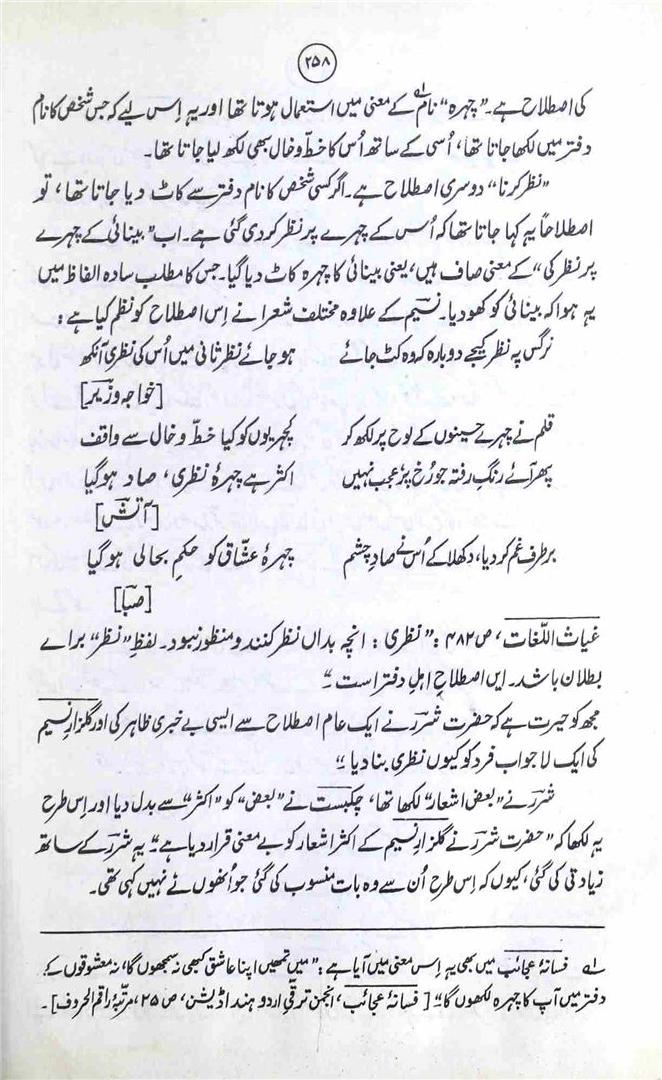 ۲۵۸
کی اصطلاح ہے۔ "چہرہ" نام لہ کے معنی میں استعمال ہوتا تھا اور یہ اِس لیے کہ جس شخص کا نام
دفتر میں لکھا جاتا تھا، اُسی کے ساتھ اُس کا خطّ و خال بھی لکھ لیا جاتا تھا۔
"نظر کرنا" دوسری اصطلاح ہے۔ اگر کسی شخص کا نام دفتر سے کاٹ دیا جاتا تھا، تو
اصطلاحاً یہ کہا جاتا تھا کہ اُس کے چہرے پر نظر کر دی گئی ہے۔ اب "بینائی کے چہرے
پر نظر کی" کے معنی صاف ہیں، یعنی بینائی کا چہرہ کاٹ دیا گیا۔ جس کا مطلب سادہ الفاظ میں
یہ ہوا کہ بینائی کو کھو دیا۔ نسیم کے علاوہ مختلف شعرا نے اِس اصطلاح کو نظم کیا ہے:
نرگس پہ نظر کیجے دوبارہ کہ وہ کٹ جائے ہو جائے نظرِ ثانی میں اُس کی نظری آنکھ
[خواجہ وزیر]
قلم نے چہرے حسینوں کے لوح پر لکھ کر کچہریوں کو کیا خطّ و خال سے واقف
پھر آئے رنگِ رفتہ جو رُخ پر عجب نہیں اکثر ہے چہرۂ نظری، صاد ہو گیا
[آتش]
برطرف غم کر دیا، دکھلا کے اُس نے صادِ چشم چہرۂ عشّاق کو حکمِ بحالی ہو گیا
[صبا]
غیاث اللّغات، ص ۴۸۲: "نظری: انچہ بداں نظر کنند و منظور نبود۔ لفظِ "نظر" براے
بطلان باشد۔ ایں اصطلاحِ اہلِ دفتر است۔"
مجھ کو حیرت ہے کہ حضرت شرر نے ایک عام اصطلاح سے ایسی بے خبری ظاہر کی اور گلزارِ نسیم
کی ایک لاجواب فرد کو کیوں نظری بنا دیا"۔
شرر نے "بعض اشعار" لکھا تھا، چکبست نے "بعض" کو "اکثر" سے بدل دیا اور اِس طرح
یہ لکھا کہ "حضرت شرر نے گلزارِ نسیم کے اکثر اشعار کو بے معنی قرار دیا ہے"۔ یہ شرر کے ساتھ
زیادتی کی گئی، کیوں کہ اِس طرح اُن سے وہ بات منسوب کی گئی جو اُنھوں نے نہیں کہی تھی۔
لہ فسانۂ عجائب میں بھی یہ اِس معنی میں آیا ہے: "میں تمھیں اپنا عاشق کبھی نہ سمجھوں گا، نہ معشوقوں کے
دفتر میں آپ کا چہرہ لکھوں گا"۔ [فسانۂ عجائب، انجمن ترقّیِ اردو ہند اڈیشن، ص ۲۵، مرتّبۂ راقم الحروف]۔